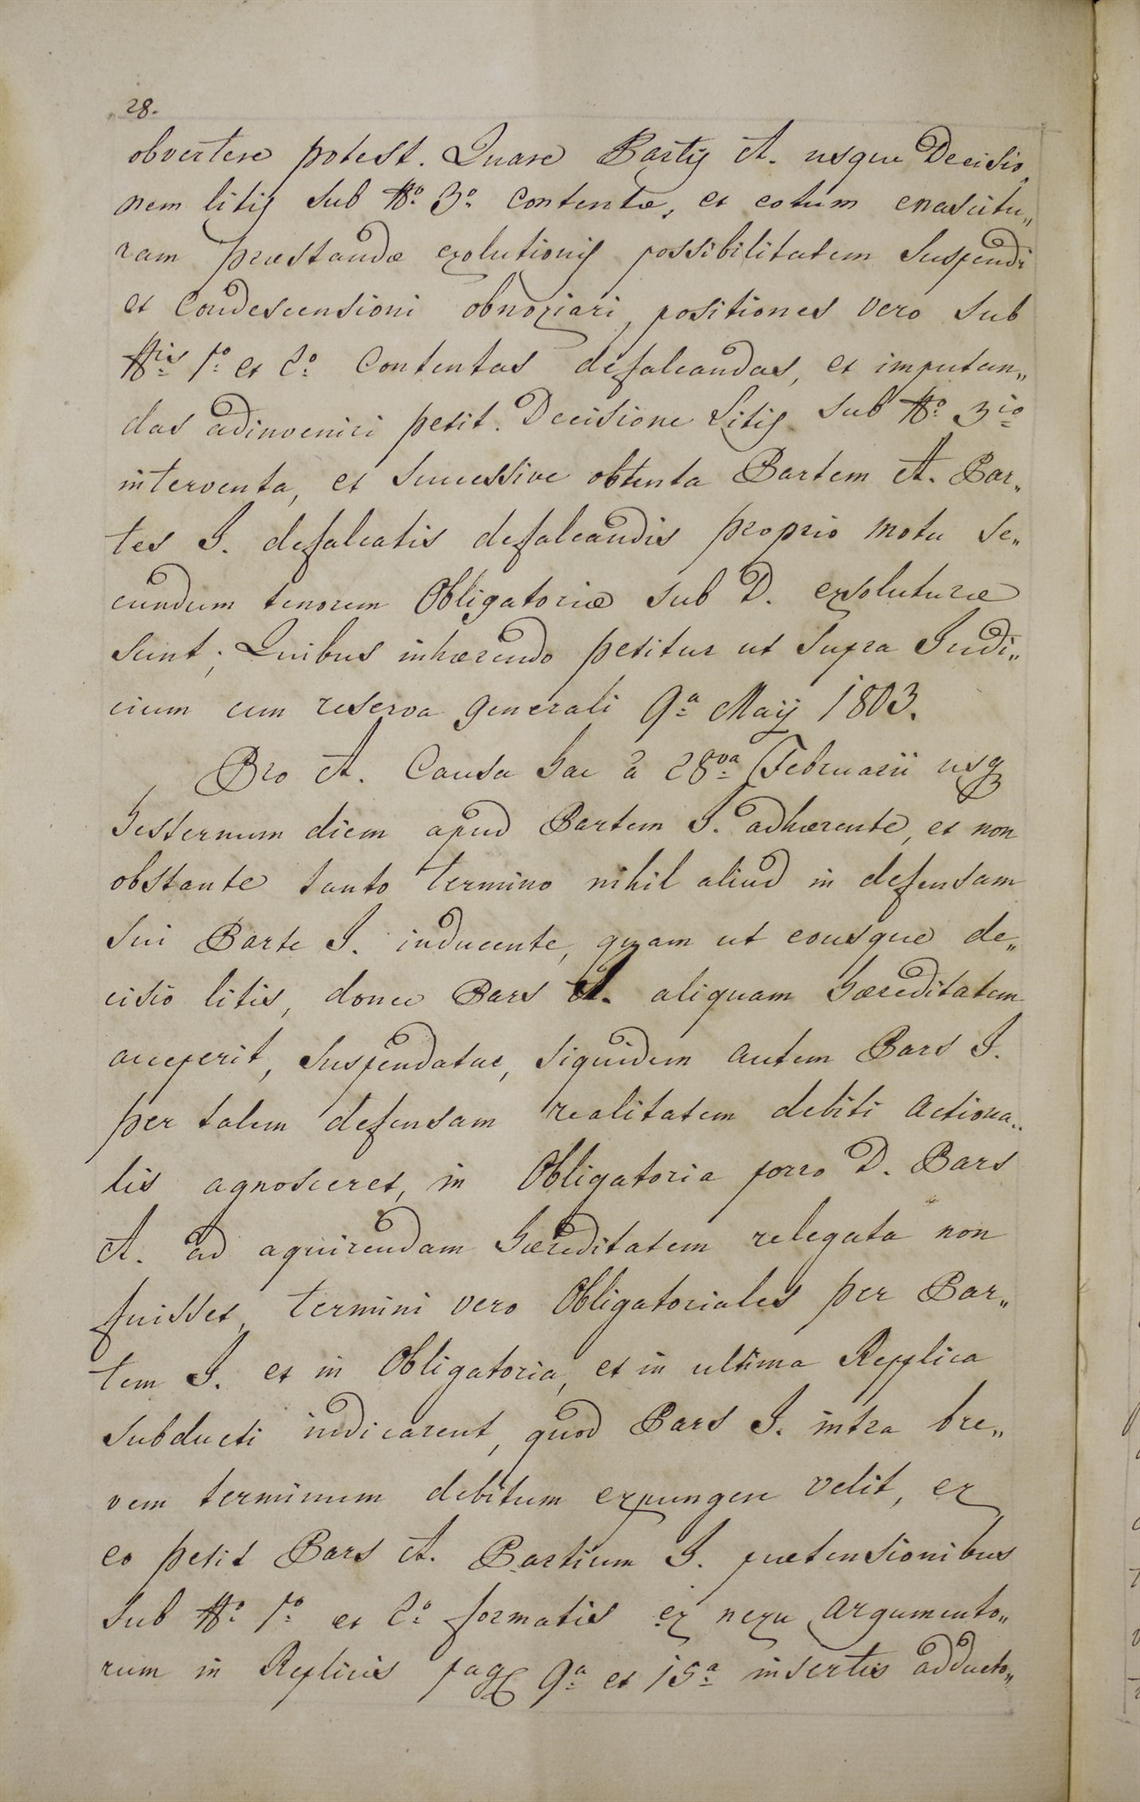 28.
obvertere potest. Quare Partis A. usque Decisio„
nem litis sub No. 3o. contentæ, et eotum enascitu„
ram præstandæ exolutionis possibilitatem suspendi
et Condescensioni obnoxiari, positiones vero sub
Nis 1o. et 2o. Contentas defalcandas, et imputan„
das adinveniri petit. Decisione Litis sub No. 3io
interventa, et successive obtenta Partem A. Par„
tes I. defalcatis defalcandis proprio motu se„
cundum tenorem Obligatoriæ sub D. exsoluturæ
sunt; Quibus inhærendo petitur ut supra Judi„
cium cum reserva generali 9a Maij 1803.
Pro A. Causa hac à 28va Februarii usq
hesternum diem apud Partem I. adhærente, et non
obstante tanto termino nihil aliud in defensam
sui Parte I. inducente, quam ut eousque de„
cisio litis, donec Pars A. aliquam hæreditatem
acceperit, suspendatur, siquidem autem Pars I.
per talem defensam realitatem debiti actiona„
lis agnosceret, in Obligatoria porro D. Pars
A. ad aquirendam hæreditatem relegata non
fuisset, termini vero Obligatoriales per Par„
tem I. et in Obligatoria, et in ultima Replica
subducti indicarent, quod Pars I. intra bre„
vem terminum debitum expungere velit, ex
eo petit Pars A. Partium I. prætensionibus
sub No. 1o. et 2o. formatis ex nexu argumento„
rum in Replicis pag 9a et 15a insertis adducto„